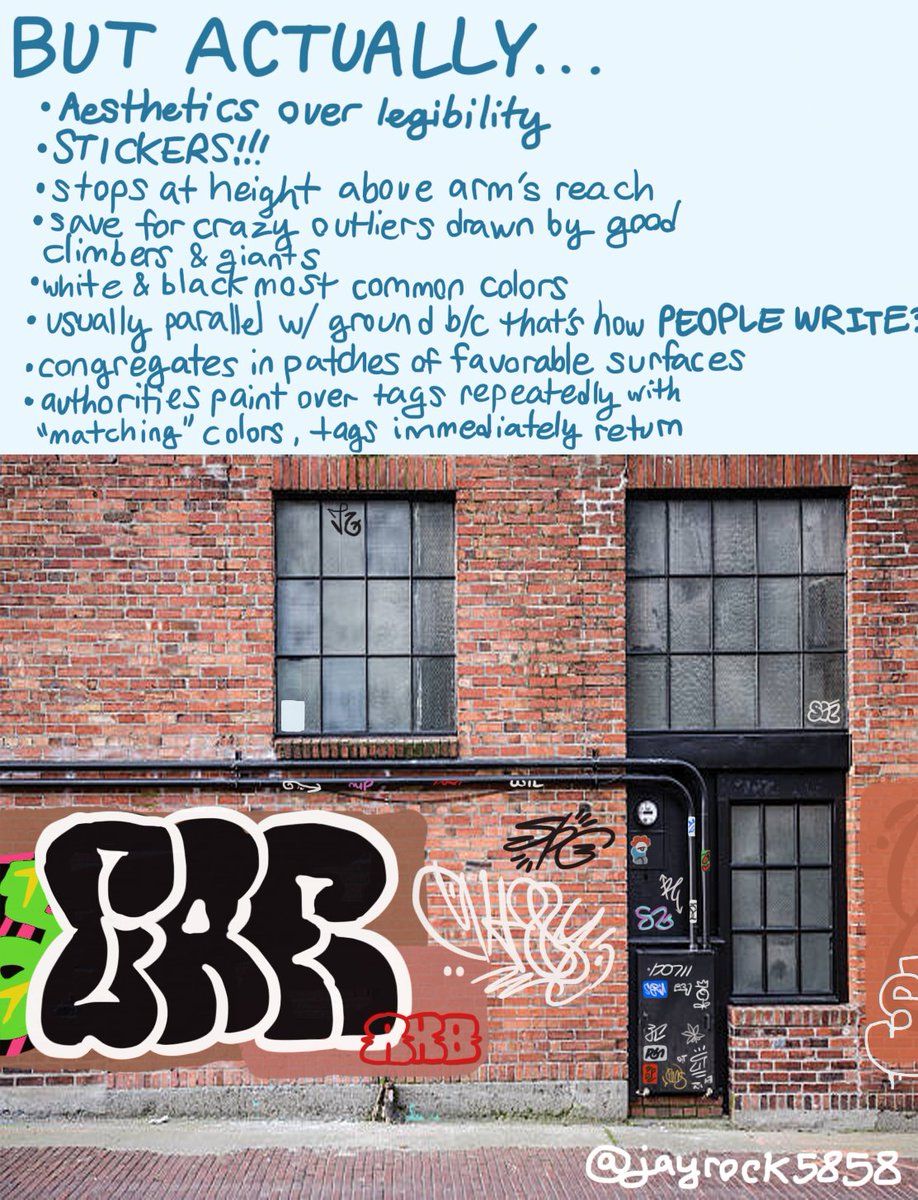 BUT ACTUALLY...
• Aesthetics over legibility
• STICKERS!!!
• stops at height above arm's reach
• save for crazy outliers drawn by good
climbers & giants
• white & black most common colors
• usually parallel w/ ground b/c that's how PEOPLE WRITE?
• congregates in patches of favorable surfaces
• authorities paint over tags repeatedly with
"matching" colors, tags immediately return
RKB
@jayrock5858